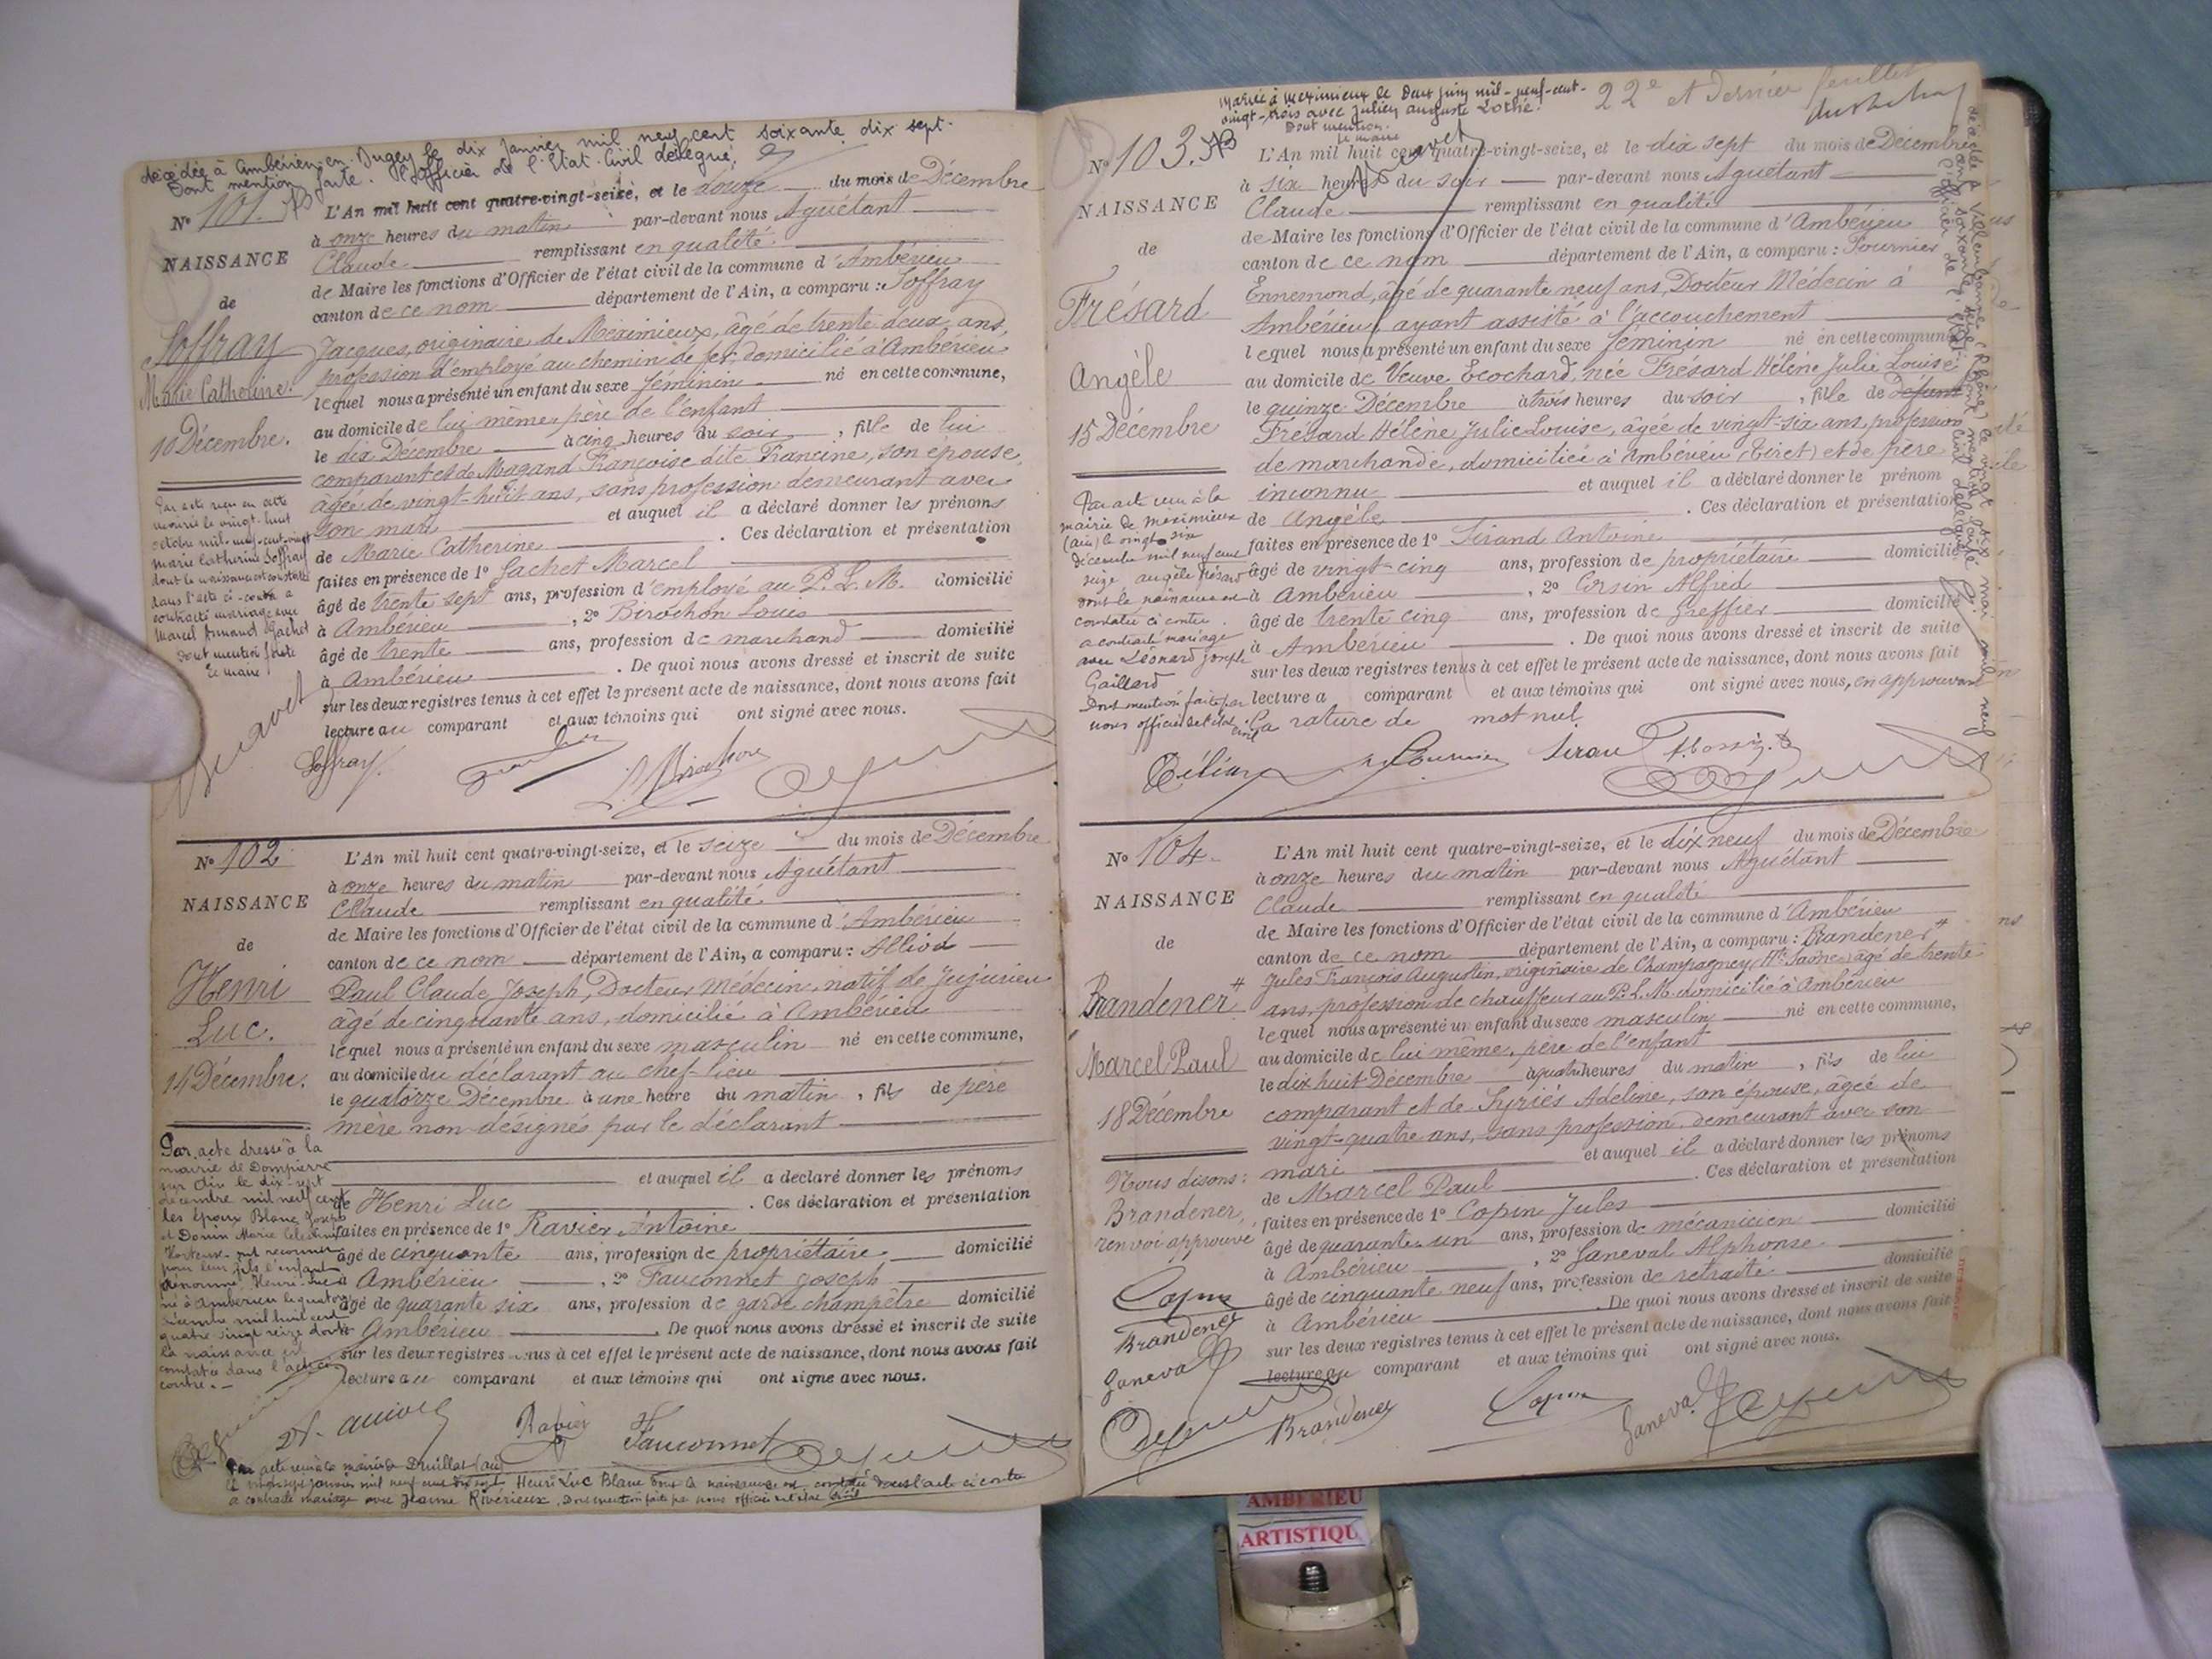 décédée à Ambérieu-en-Bugey le dix Janvier mil neuf cent soixante dix sept.
Dont mention faite. L'Officier de l'Etat-Civil délégué,
N° 101.
L'An mil huit cent quatre-vingt-seize, et le douze du mois de Décembre
à onze heures du matin par-devant nous Aguétant
NAISSANCE
Claude remplissant en qualité
de Maire les fonctions d'Officier de l'état civil de la commune d'Ambérieu
de
canton de ce nom département de l'Ain, a comparu : Soffray
Soffray
Jacques, originaire de Meximieux, âgé de trente deux ans,
profession d'employé au chemin de fer, domicilié à Ambérieu
Marie Catherine.
lequel nous a présenté un enfant du sexe féminin né en cette commune,
au domicile de lui même, père de l'enfant
10 Décembre.
le dix Décembre à cinq heures du soir, fille de lui
comparant et de Magand Françoise dite Francine, son épouse,
âgée de vingt-huit ans, sans profession demeurant avec
son mari et auquel il a déclaré donner les prénoms
de Marie Catherine . Ces déclaration et présentation
faites en présence de 1° Gachet Marcel
âgé de trente sept ans, profession d'employé au P. L. M. domicilié
à Ambérieu , 2° Birochon Louis
âgé de trente ans, profession de marchand domicilié
à Ambérieu . De quoi nous avons dressé et inscrit de suite
sur les deux registres tenus à cet effet le présent acte de naissance, dont nous avons fait
lecture au comparant et aux témoins qui ont signé avec nous.
Par acte reçu en cette
mairie le vingt-huit
octobre mil-neuf-cent-vingt
Marie Catherine Soffray
dont la naissance est constatée
dans l'acte ci-contre a
contracté mariage avec
Marcel Armand Gachet
Dont mention faite
Le maire,
Soffray
L. Birochon
N° 102
L'An mil huit cent quatre-vingt-seize, et le seize du mois de Décembre
à onze heures du matin par-devant nous Aguétant
NAISSANCE
Claude remplissant en qualité
de Maire les fonctions d'Officier de l'état civil de la commune d'Ambérieu
de
canton de ce nom département de l'Ain, a comparu : Alliod
Henri
Paul Claude Joseph, Docteur Médecin, natif de Jujurieu
Luc.
âgé de cinquante ans, domicilié à Ambérieu
lequel nous a présenté un enfant du sexe masculin né en cette commune,
14 Décembre.
au domicile du déclarant au chef-lieu
le quatorze Décembre à une heure du matin, fils de père
mère non désignés par le déclarant
et auquel il a déclaré donner les prénoms
de Henri Luc . Ces déclaration et présentation
faites en présence de 1° Ravier Antoine
âgé de cinquante ans, profession de propriétaire domicilié
à Ambérieu , 2° Fauconnet Joseph
âgé de quarante six ans, profession de garde champêtre domicilié
à Ambérieu . De quoi nous avons dressé et inscrit de suite
sur les deux registres tenus à cet effet le présent acte de naissance, dont nous avons fait
lecture au comparant et aux témoins qui ont signé avec nous.
Par acte dressé à la
mairie de Dompierre
sur Ain le dix-sept
décembre mil neuf cent
les époux Blanc Joseph
et Donin Marie Célestine
Hortense ont reconnu
pour leur fils l'enfant
prénommé Henri-Luc
né à Ambérieu le quatorze
décembre mil huit cent
quatre vingt seize dont
la naissance est
constatée dans l'acte ci
contre.
Ravier
Fauconnet
Par acte reçu à la mairie de Druillat (Ain)
le vingt sept janvier mil neuf cent dix sept Henri Luc Blanc dont la naissance est constatée dans l'acte ci contre
a contracté mariage avec Jeanne Rivérieux. Dont mention faite par nous officier de l'état civil
Mariée à Meximieux le deux juin mil-neuf-cent-
vingt-trois avec Julien Auguste Lothé.
Dont mention.
Le maire
22e et dernier feuillet
N° 103.
L'An mil huit cent quatre-vingt-seize, et le dix sept du mois de Décembre
à six heures du soir par-devant nous Aguétant
NAISSANCE
Claude remplissant en qualité
de Maire les fonctions d'Officier de l'état civil de la commune d'Ambérieu
de
canton de ce nom département de l'Ain, a comparu : Fournier
Frésard
Ennemond, âgé de quarante neuf ans, Docteur Médecin à
Ambérieu, ayant assisté à l'accouchement
lequel nous a présenté un enfant du sexe féminin né en cette commune,
Angèle
au domicile de Veuve Ecochard, née Frésard Hélène Julie Louise
le quinze Décembre à trois heures du soir, fille de Défunt
15 Décembre
Frésard Hélène Julie Louise, âgée de vingt-six ans, profession
de marchande, domiciliée à Ambérieu (Tiret) et de père
inconnu et auquel il a déclaré donner le prénom
de Angèle . Ces déclaration et présentation
faites en présence de 1° Sirand Antoine
âgé de vingt-cinq ans, profession de propriétaire domicilié
à Ambérieu , 2° Corsin Alfred
âgé de trente cinq ans, profession de Greffier domicilié
à Ambérieu . De quoi nous avons dressé et inscrit de suite
sur les deux registres tenus à cet effet le présent acte de naissance, dont nous avons fait
lecture a comparant et aux témoins qui ont signé avec nous, en approuvant
la rature de mot nul.
Par acte reçu à la
mairie de Meximieux
(Ain) le vingt-six
décembre mil neuf cent
seize Angèle Frésard
dont la naissance est
constatée ci contre
a contracté mariage
avec Léonard Joseph
Gaillard
Dont mention faite par
nous officier de l'état civil
Fournier
Sirand
N° 104.
L'An mil huit cent quatre-vingt-seize, et le dix neuf du mois de Décembre
à onze heures du matin par-devant nous Aguétant
NAISSANCE
Claude remplissant en qualité
de Maire les fonctions d'Officier de l'état civil de la commune d'Ambérieu
de
canton de ce nom département de l'Ain, a comparu : Brandener #
Brandener #
Jules François Augustin, originaire de Champagney (Hte Saône) âgé de trente
ans, profession de chauffeur au P. L. M. domicilié à Ambérieu
lequel nous a présenté un enfant du sexe masculin né en cette commune,
Marcel Paul
au domicile de lui même, père de l'enfant
le dix huit Décembre à quatre heures du matin, fils de lui
18 Décembre
comparant et de Syriés Adeline, son épouse, âgée de
vingt-quatre ans, sans profession, demeurant avec son
mari et auquel il a déclaré donner les prénoms
de Marcel Paul . Ces déclaration et présentation
faites en présence de 1° Copin Jules
âgé de quarante-un ans, profession de mécanicien domicilié
à Ambérieu , 2° Janeval Alphonse
âgé de cinquante neuf ans, profession de retraité domicilié
à Ambérieu . De quoi nous avons dressé et inscrit de suite
sur les deux registres tenus à cet effet le présent acte de naissance, dont nous avons fait
lecture au comparant et aux témoins qui ont signé avec nous.
Nous disons :
Brandener,
renvoi approuvé
Copin
Brandener
Janeval
Brandener
Copin
Janeval
AMBERIEU
ARTISTIQU